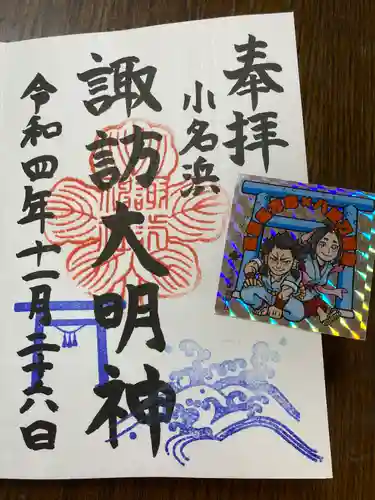 奉拝
小名浜
諏訪大明神
令和四年十一月二十六日